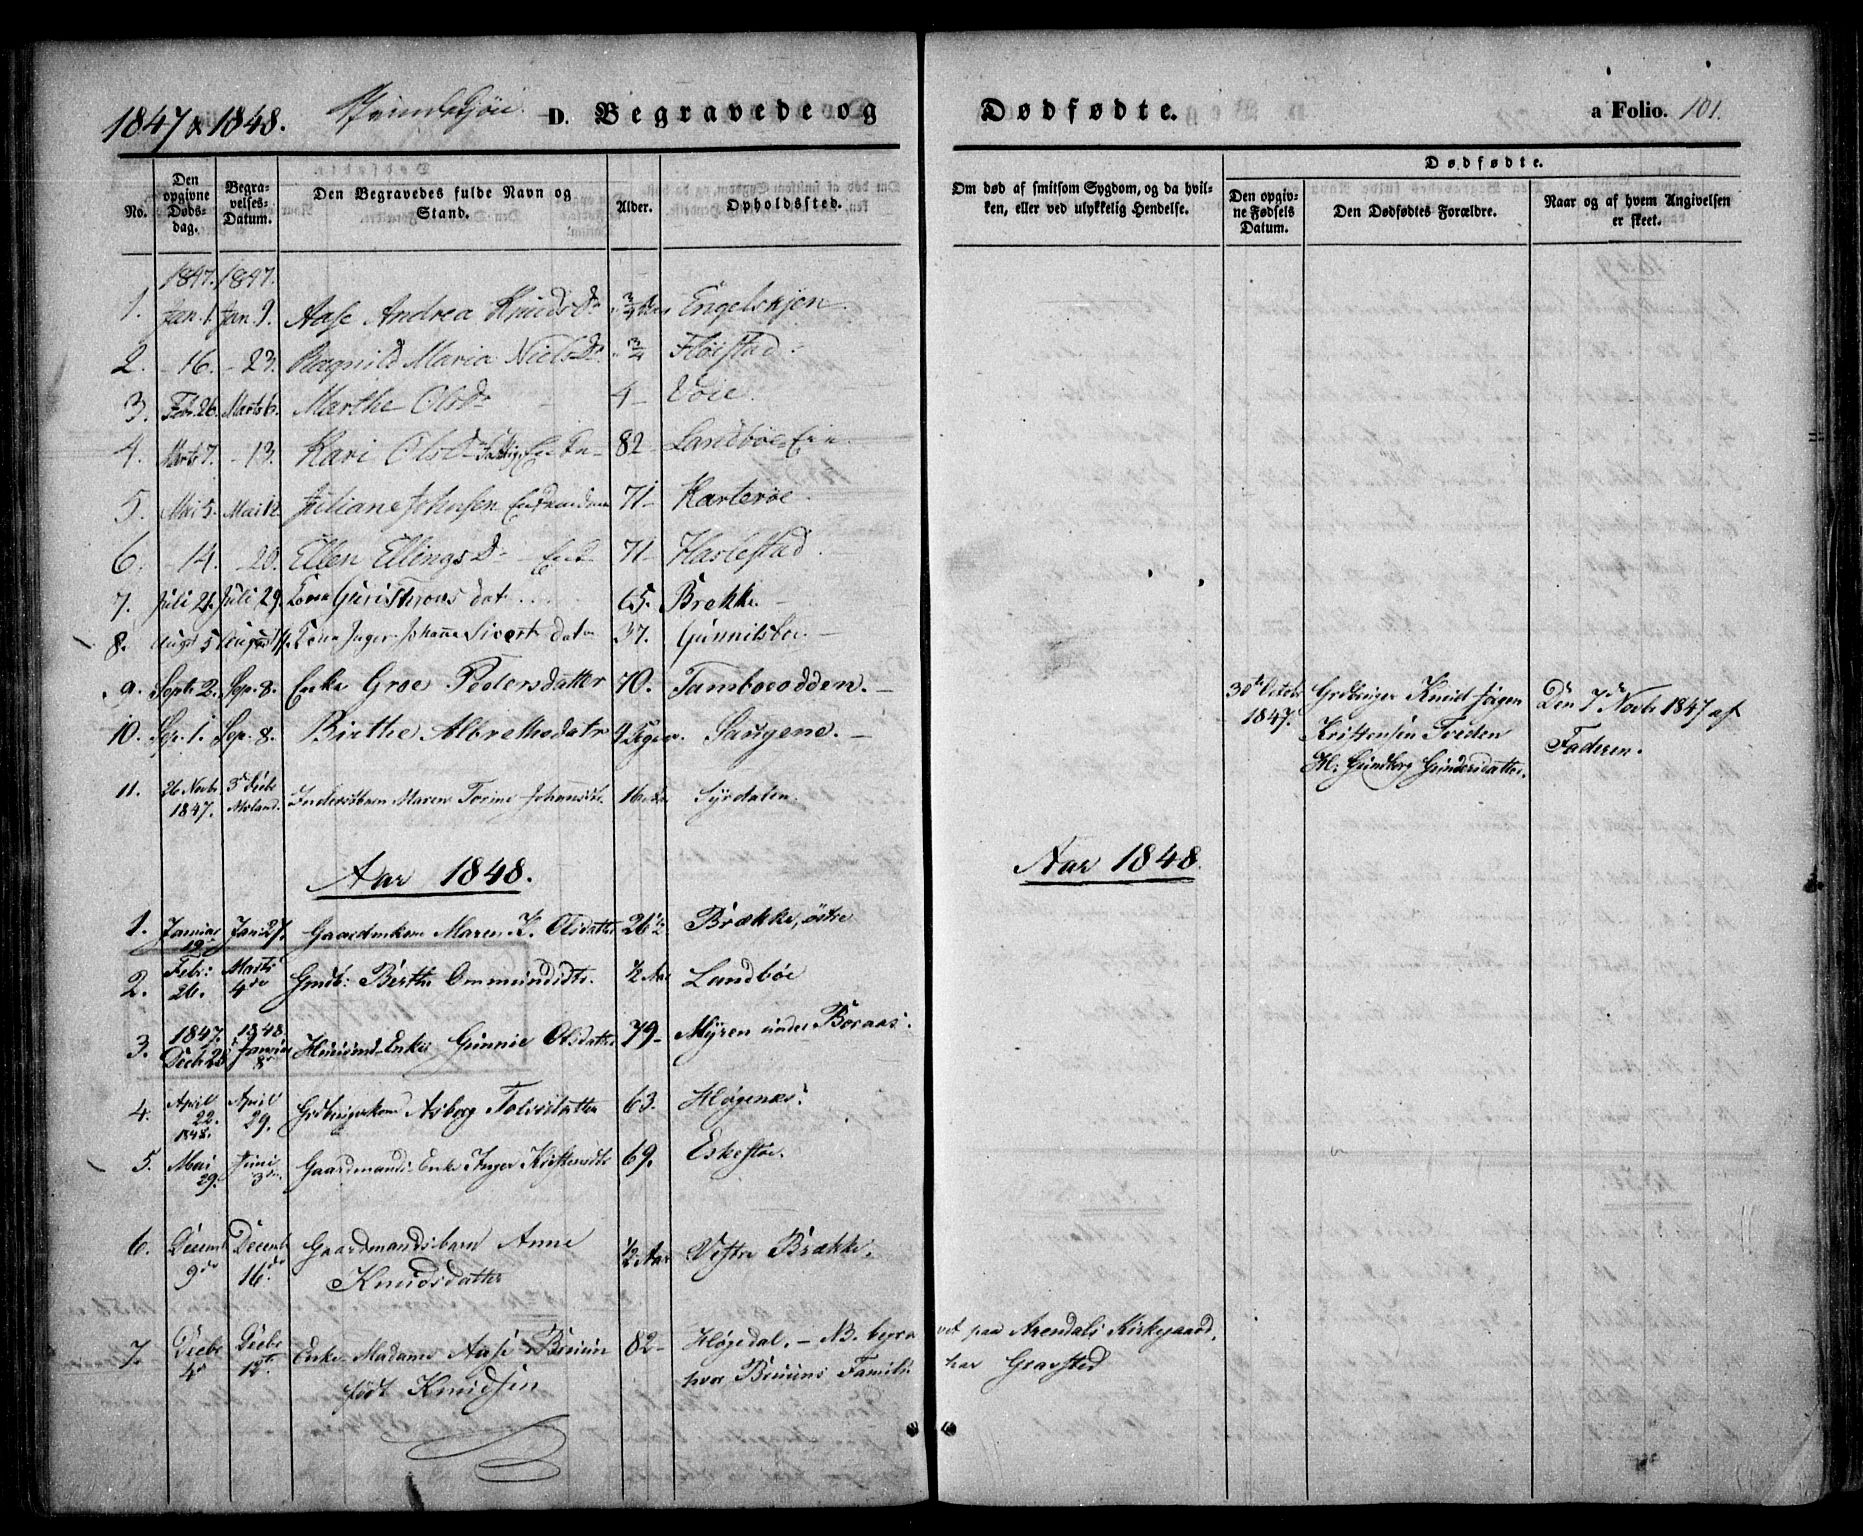 1847 & 1848. Qvindekjøn. D. Begravede og Dødfødte. a Folio. 101.
No. Den opgivne Døds-dag. Begra-velses-Datum. Den Begravedes fulde Navn og Stand. Alder. Opholdssted. Om død af smitsom Sygdom, og da hvil-ken, eller ved ulykkelig Hendelse. Dødfødte. Den opgiv-ne Fødsels Datum. Den Dødfødtes Forældre. Naar og af hvem Angivelsen er skeet.
1847. 1847.
1. Jan. 1. Jan. 9. Aase Andrea Knudsdr. 3/4 Aar Engelskjøn
2. - 16. - 23. Ragnild Maria Nielsdr. 3/4 Fløistad.
3. Febr. 26. Marts 6. Marthe Olsdr - 4 - Voie.
4. Marts 7. - 13. Kari Olsdr 82 - Landbøe
5. Mai 5. Mai 12. Juliane Johnsen 71 - Karterøe
6. - 14. - 20. Ellen Ellingsdr. 71 - Harlestad.
7. Juli 21. Juli 29. 65. Brekke. -
8. Augst 5. August 14. Inger Johanne Sivertsdatr 37. Gunnilsboe. -
9. Septb 2. Sep. 8. Enke Groe Pedersdatter 70. Tamboeodden. -
10. Sep. 1. Sep. 8. Birthe Albrethsdatr Saugene. -
30te Octob 1847. Grdbruger Knud Jørgen Kristensen Tveden H: Gundborg Gundersdatter. Den 7de Novb 1847 af Faderen.
11. 26 Novb 1847. 3de Decbr Moland. Inderstbarn Maren Torine Johansdtr. 16 Syrdalen.
Aar 1848. Aar 1848.
1. Januar 19de Jan: 27. Gaardmkone Maren K. Olsdatter 26 1/2 Brække, østre
2. Febr: 26. Marts 4de Grdb: Berthe Ommundsdtr. 1/2 Aar Landbøe
3. 1847. Decb 28 1848. Januar 8de Huusmd-Enke Gunnie Olsdatter 79 - Myren under Boraas.
4. April 22. 1848. April 29. Grdbrugerkone Asborg Tolvsdatter 63. Høgenæs.
5. Mai 29. Juni 3die Gaardmands Enke Inger Kristensdtr 69. Eskestøe.
6. Decemb 9de Decemb 16de Gaardmandsbarn Anne
Knudsdatter 1/2 Aar Vestre Brække.
7. Decbr 4de Decbr 12te Enke Madame Aase Bruun 82 - Høgedal. - NB. begravet paa Arendals Kirkegaard,
født Knudsen hvor Bruuns Famili har Gravsted